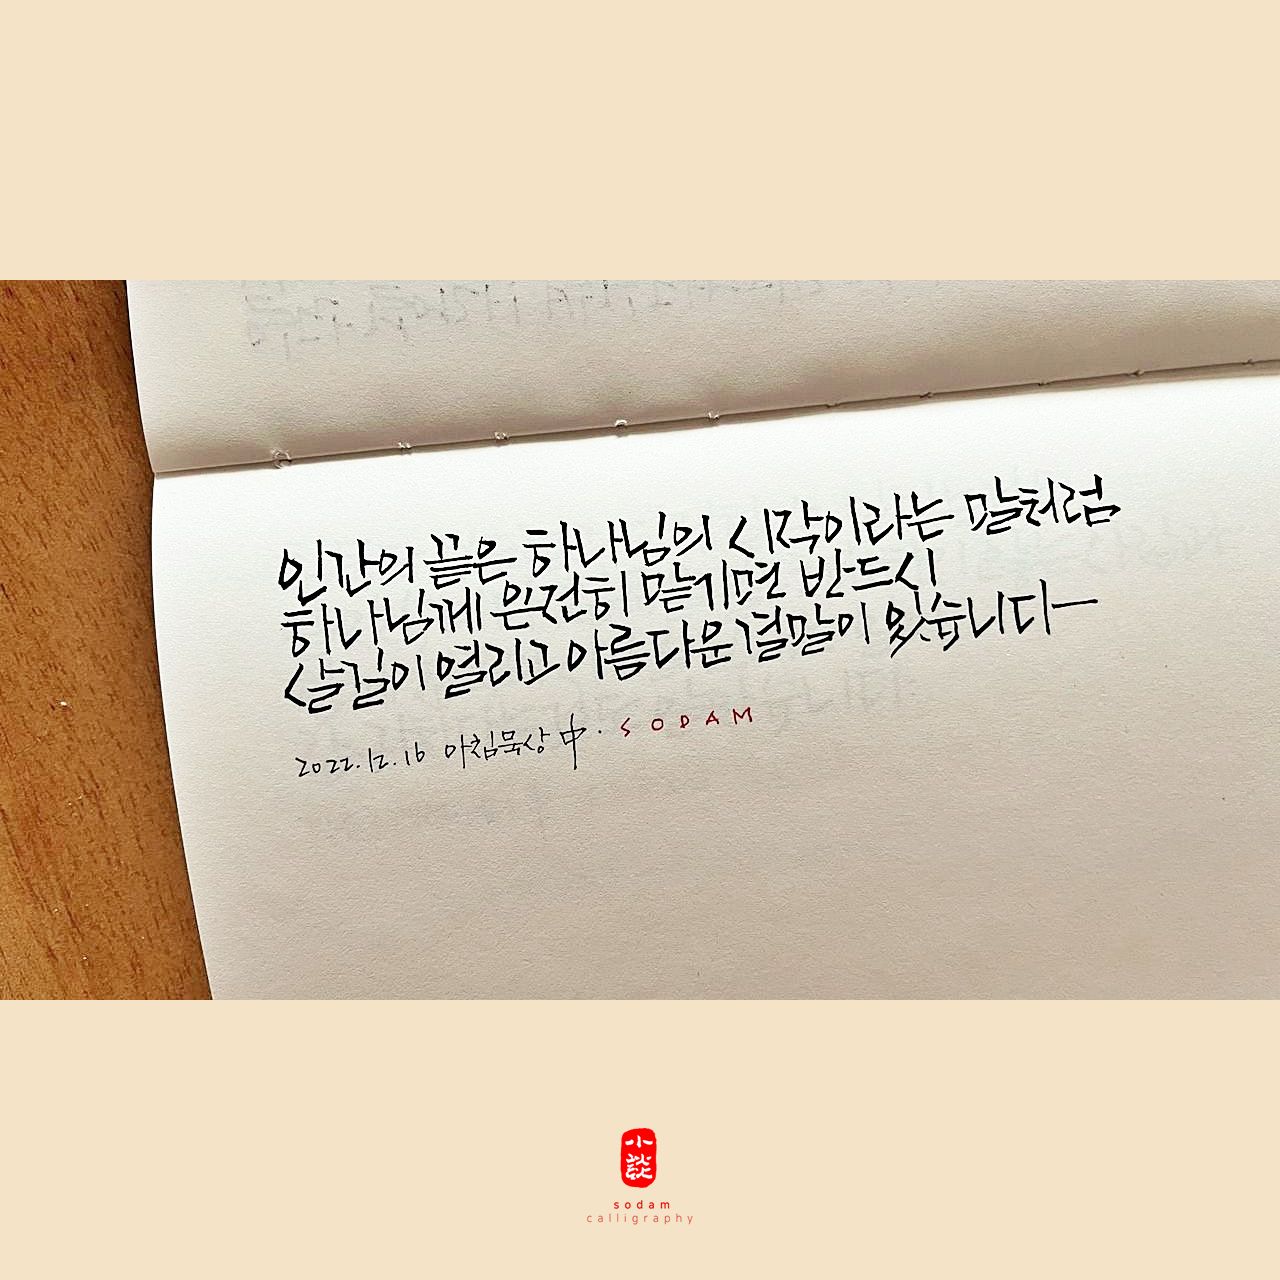 인간의 끝은 하나님의 시작이라는 말처럼
하나님께 온전히 맡기면 반드시
살길이 열리고 아름다운 결말이 있습니다
2022.12.16 아침묵상 中. SODAM
小談
sodam
calligraphy